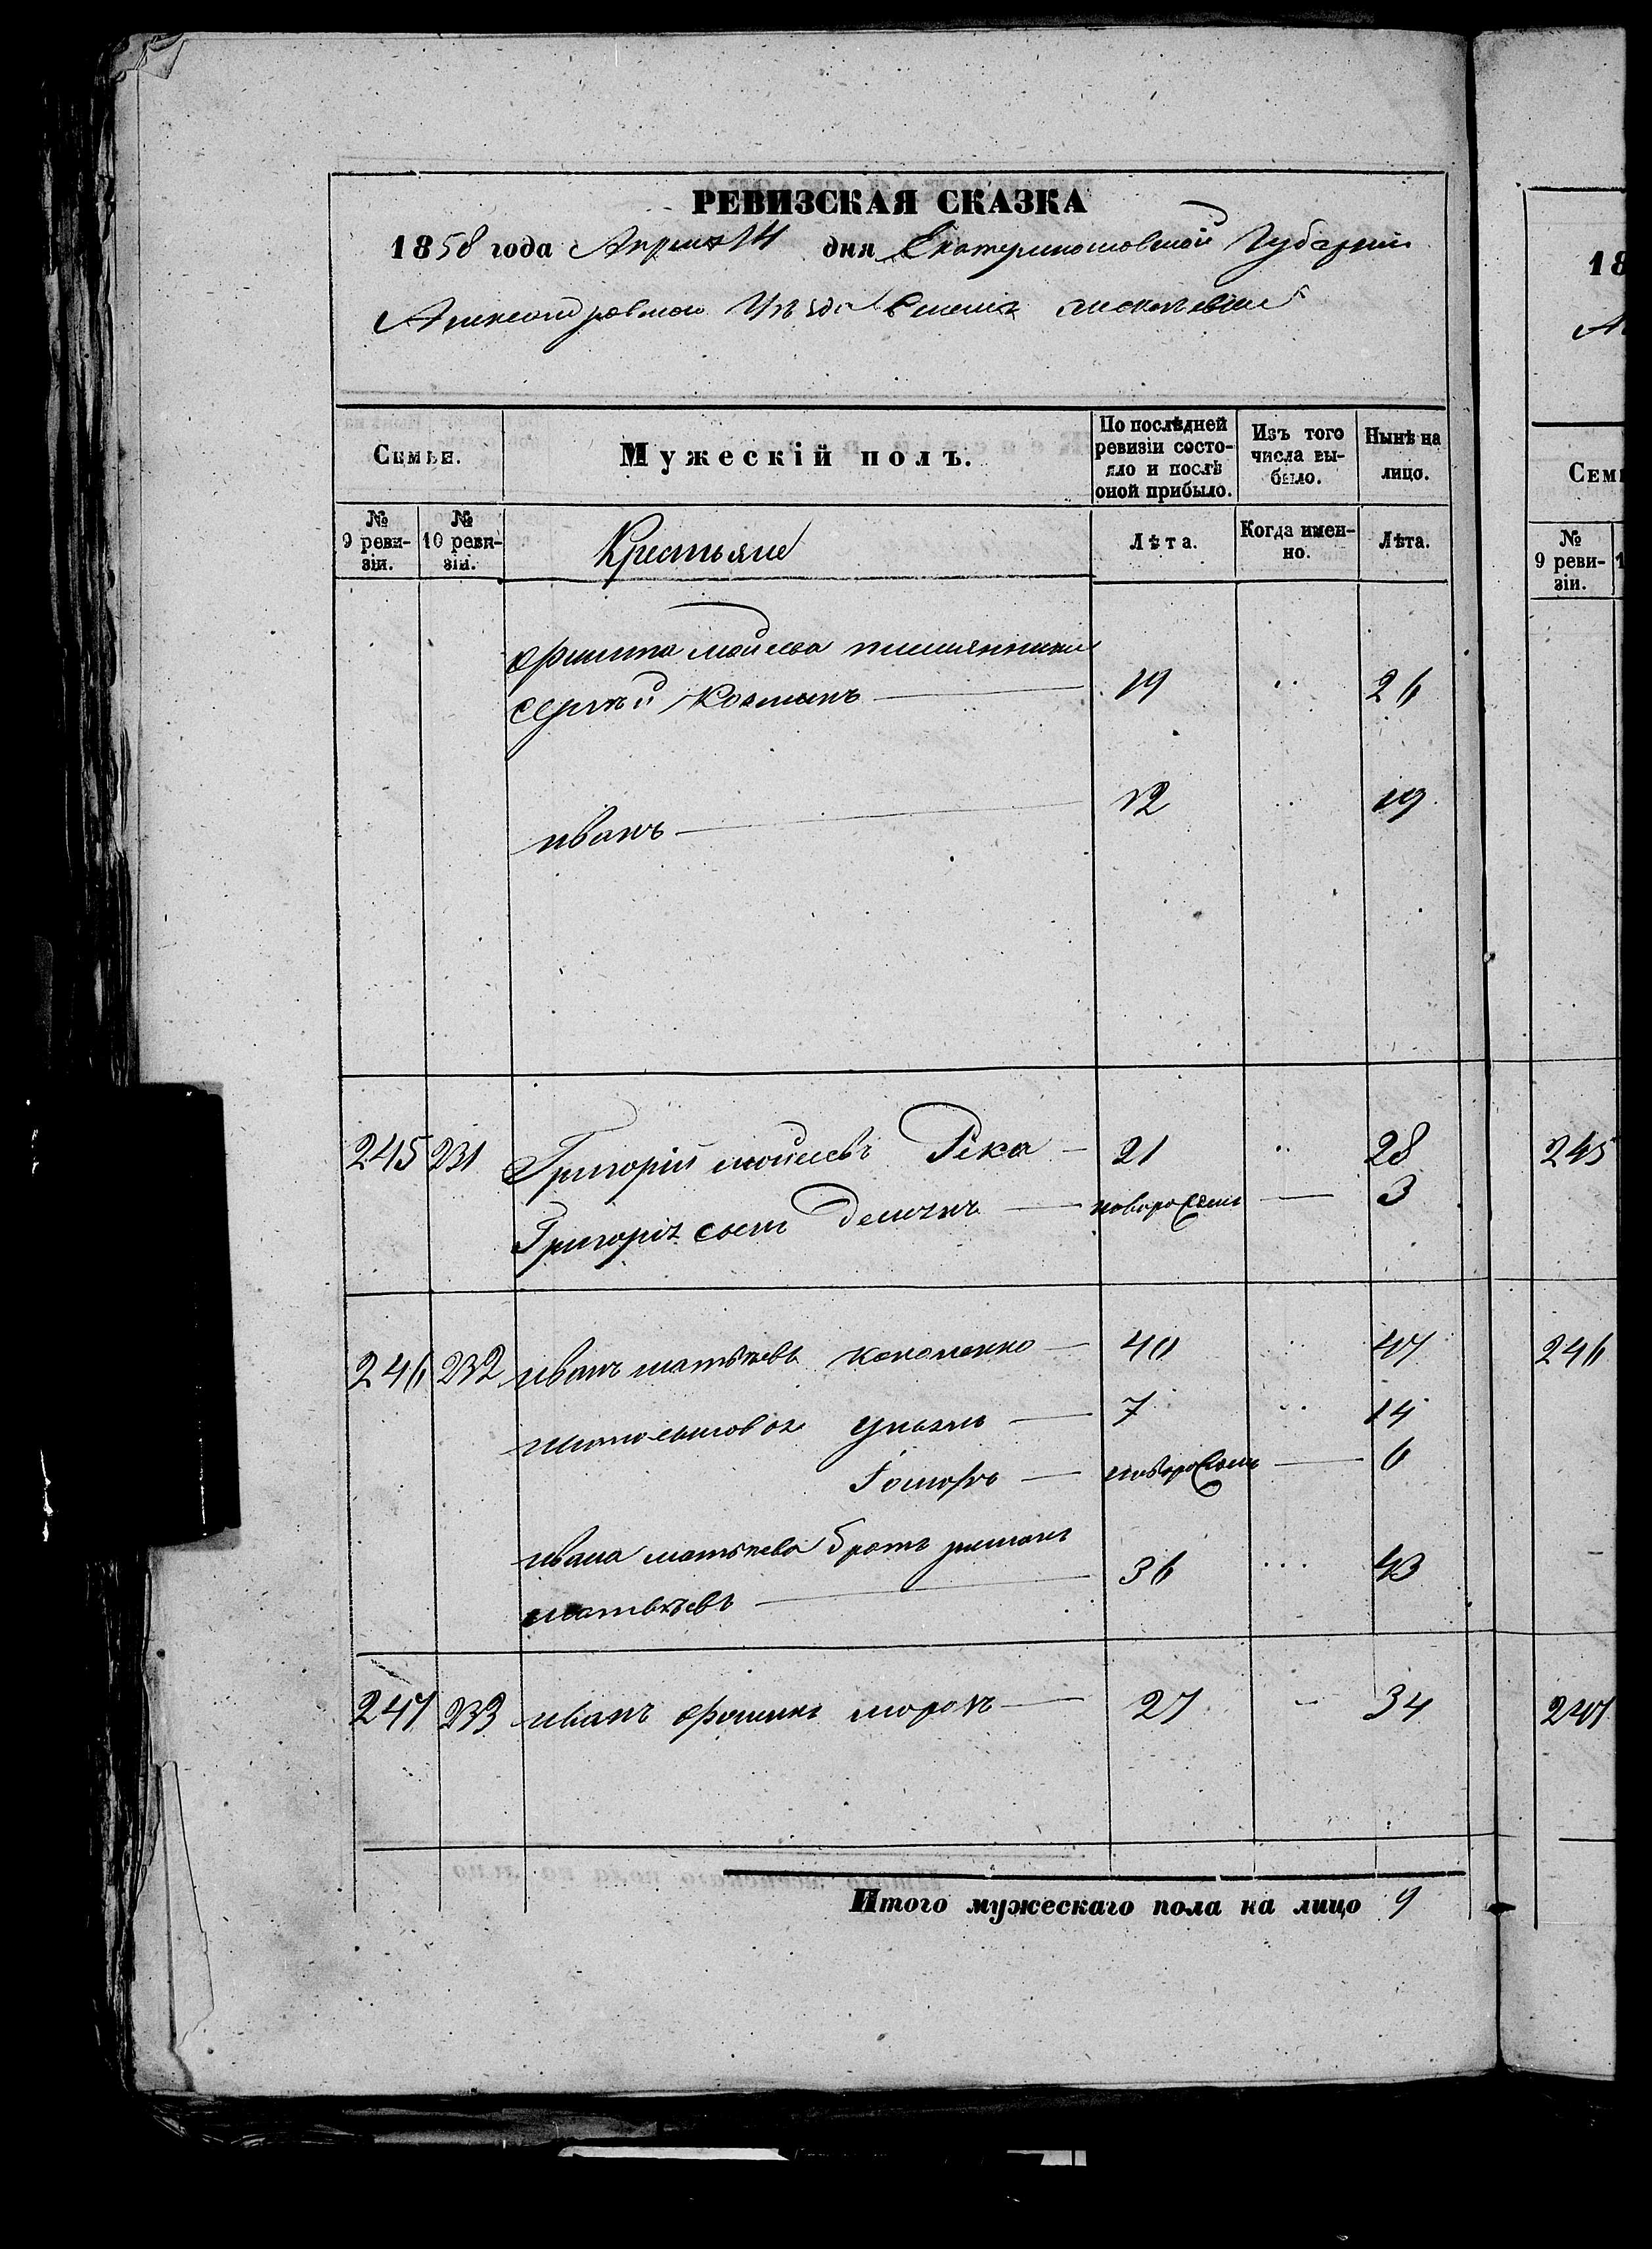 РЕВИЗСКАЯ СКАЗКА
1858 года Апреля 14 дня Екатеринославской Губернии
Александровского Уезда
Семьи.
Мужескій полъ.
По послѣдней ревизіи состо-
яло и послѣ оной прибыло.
Изъ того числа вы-
было.
Нынѣ на лицо.
№ 9 реви-
зіи.
№ 10 реви-
зіи.
Крестьяне
Лѣта.
Когда имен-
но.
Лѣта.
племянники
Сергѣй 19 26
иванъ 12 19
245 231 Григорій моисеевъ Река 21 28
сынъ новорожден 3
246 232 иванъ матвѣевъ кононенко 40 47
7 14
новорожден 6
ивана матвѣева братъ романъ
матвѣевъ 36 43
247 233 иванъ фоминъ морозъ 27 34
Итого мужескаго пола на лицо 9
18
Сем
№ 9 реви-
зіи.
245
246
247